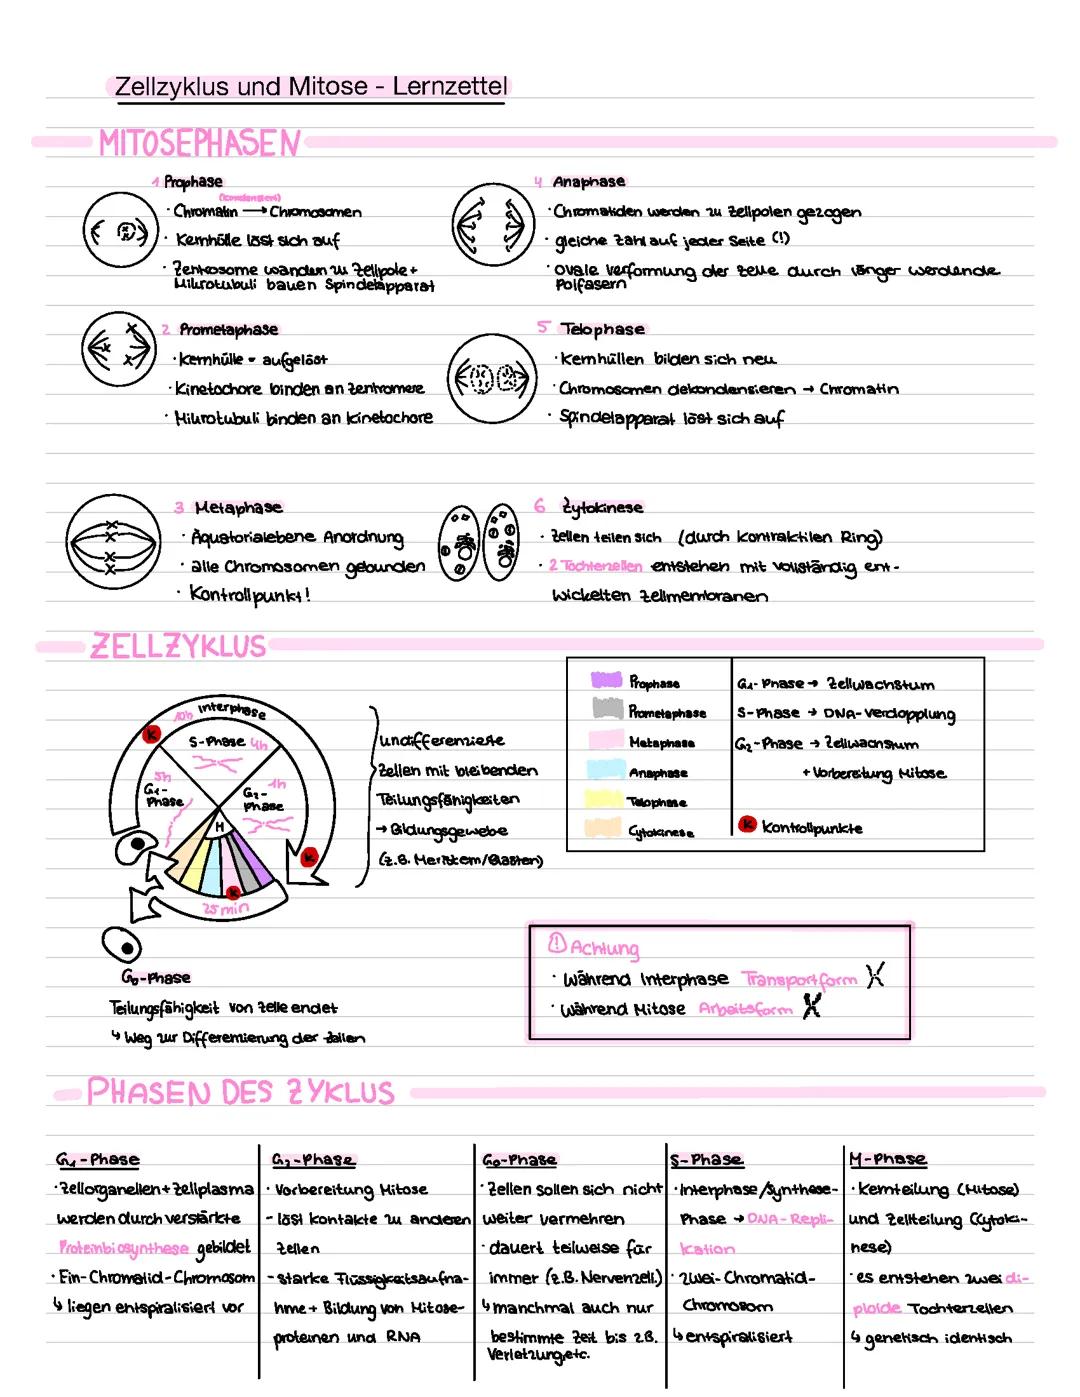 Zellzyklus und Mitose - Lernzettel
MITOSEPHASEN
1 Prophase
(kondensiert)
· Chromatin → Chromosomen
· Kernhülle löst sich auf
· Zentrosome wandern zu Zellpole +
Mikrotubuli bauen Spindelapparat
2 Prometaphase
· Kernhülle - aufgelöst
· Kinetochore binden an Zentromere
· Mikrotubuli binden an Kinetochore
3 Metaphase
· Äquatorialebene Anordnung
· alle Chromosomen gebunden
· Kontrollpunkt!
4 Anaphase
· Chromatiden werden zu Zellpolen gezogen
· gleiche Zahl auf jeder Seite (!)
· ovale Verformung der Zelle durch länger werdende
Polfasern
5 Telophase
· Kernhüllen bilden sich neu
· Chromosomen dekondensieren → Chromatin
· Spindelapparat löst sich auf
6 Zytokinese
· Zellen teilen sich (durch kontraktilen Ring)
· 2 Tochterzellen entstehen mit vollständig ent-
wickelten Zellmembranen
ZELLZYKLUS
Interphase
10h
K
S-Phase 4h
5h
G1-
Phase
1h
G2-
Phase
M
K
K
25 min
undifferenzierte
Zellen mit bleibenden
Teilungsfähigkeiten
→ Bildungsgewebe
(z.B. Meristem/Blasten)
G0-Phase
Teilungsfähigkeit von Zelle endet
↳ Weg zur Differenzierung der Zellen
Prophase
Prometaphase
Metaphase
Anaphase
Telophase
Cytokinese
G1-Phase → Zellwachstum
S-Phase → DNA-Verdopplung
G2-Phase → Zellwachstum
+ Vorbereitung Mitose
K Kontrollpunkte
! Achtung
· Während Interphase Transportform
· Während Mitose Arbeitsform
PHASEN DES ZYKLUS
G1-Phase
· Zellorganellen + Zellplasma
werden durch verstärkte
Proteinbiosynthese gebildet
· Ein-Chromatid-Chromosom
↳ liegen entspiralisiert vor
G2-Phase
· Vorbereitung Mitose
- löst Kontakte zu anderen
Zellen
- starke Flüssigkeitsaufna-
hme + Bildung von Mitose-
proteinen und RNA
G0-Phase
· Zellen sollen sich nicht
weiter vermehren
· dauert teilweise für
immer (z.B. Nervenzell.)
↳ manchmal auch nur
bestimmte Zeit bis z.B.
Verletzung, etc.
S-Phase
· Interphase/Synthese-
Phase → DNA-Repli-
kation
· Zwei-Chromatid-
Chromosom
↳ entspiralisiert
M-Phase
· Kernteilung (Mitose)
und Zellteilung (Cytoki-
nese)
· es entstehen zwei di-
ploide Tochterzellen
↳ genetisch identisch